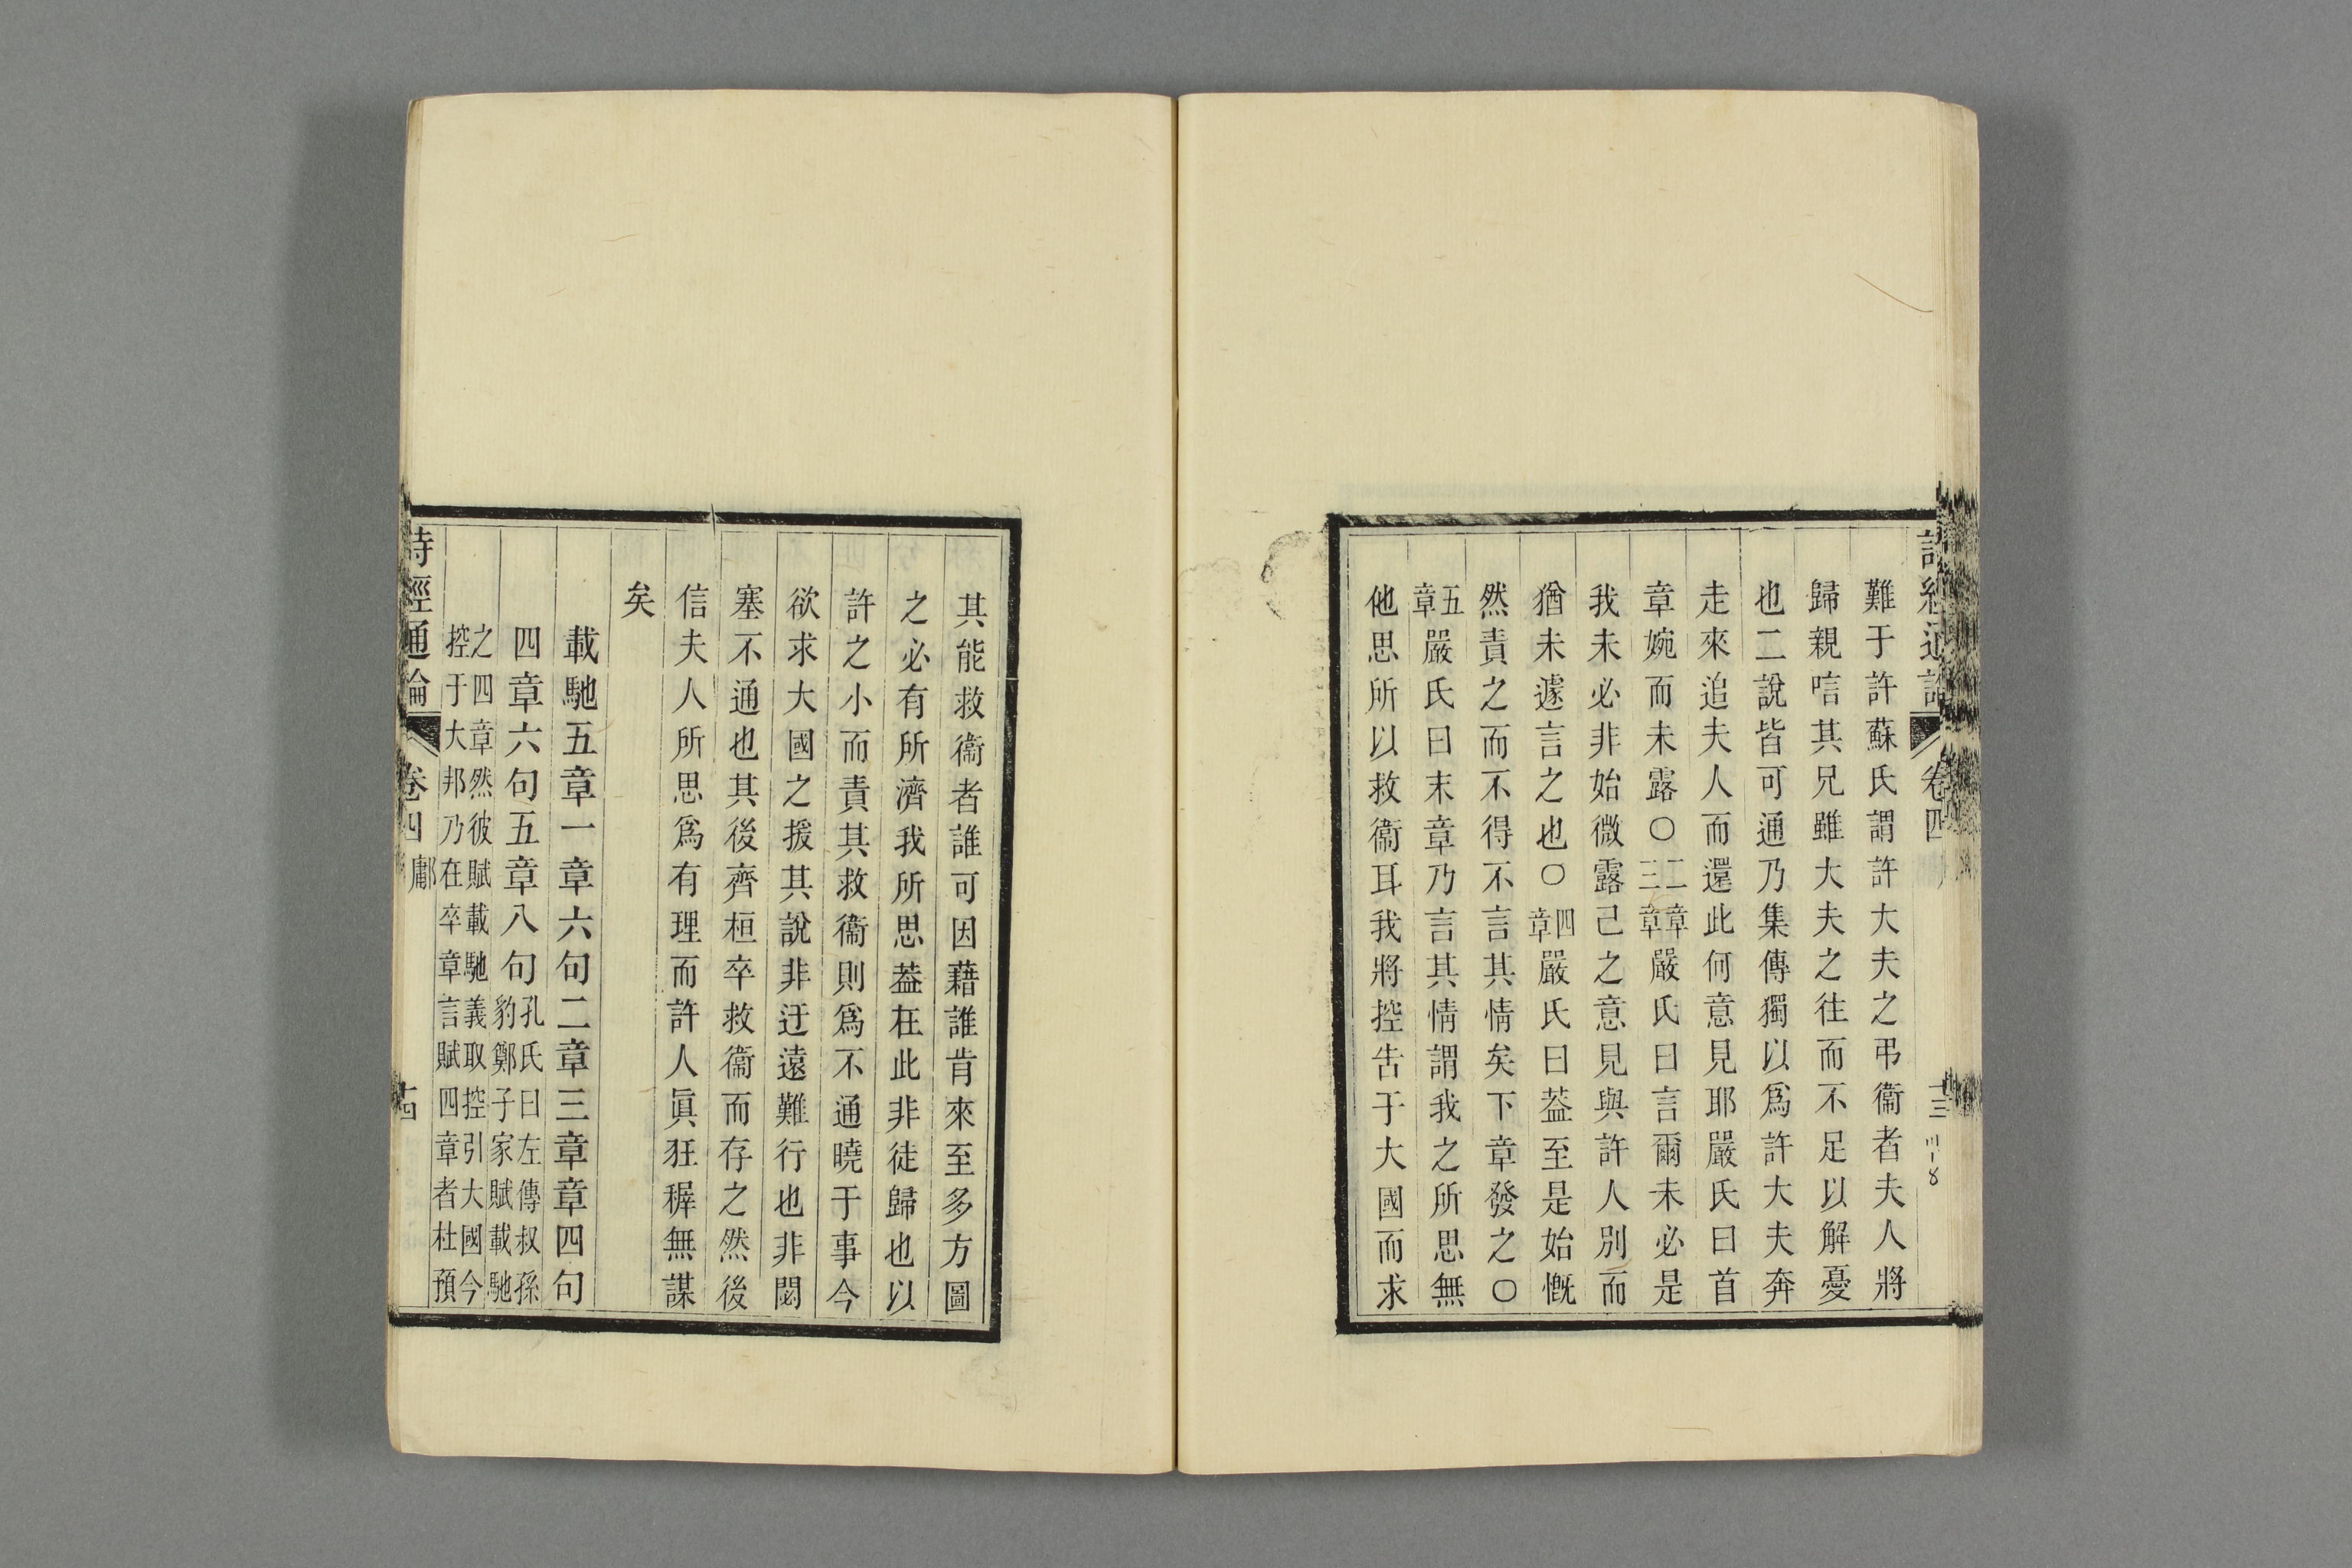 難于許蘇氏謂許大夫之弔衞者夫人將
歸親唁其兄雖大夫之往而不足以解憂
也二說皆可通乃集傳獨以爲許大夫奔
走來追夫人而還此何意見耶嚴氏曰首
章婉而未露〇二章三章嚴氏曰言爾未必是
我未必非始微露己之意見與許人別而
猶未遽言之也〇四章嚴氏曰葢至是始慨
然責之而不得不言其情矣下章發之〇
五章嚴氏曰末章乃言其情謂我之所思無
他思所以救衞耳我將控告于大國而求
其能救衞者誰可因藉誰肯來至多方圖
之必有所濟我所思葢在此非徒歸也以
許之小而責其救衞則爲不通曉于事今
欲求大國之援其說非迂遠難行也非閟
塞不通也其後齊桓卒救衞而存之然後
信夫人所思爲有理而許人眞狂稺無謀
矣
載馳五章一章六句二章三章章四句
四章六句五章八句孔氏曰左傳叔孫
豹鄭子家賦載馳
之四章然彼賦載馳義取控引大國今
控于大邦乃在卒章言賦四章者杜預
詩經通論 卷四 鄘 十四